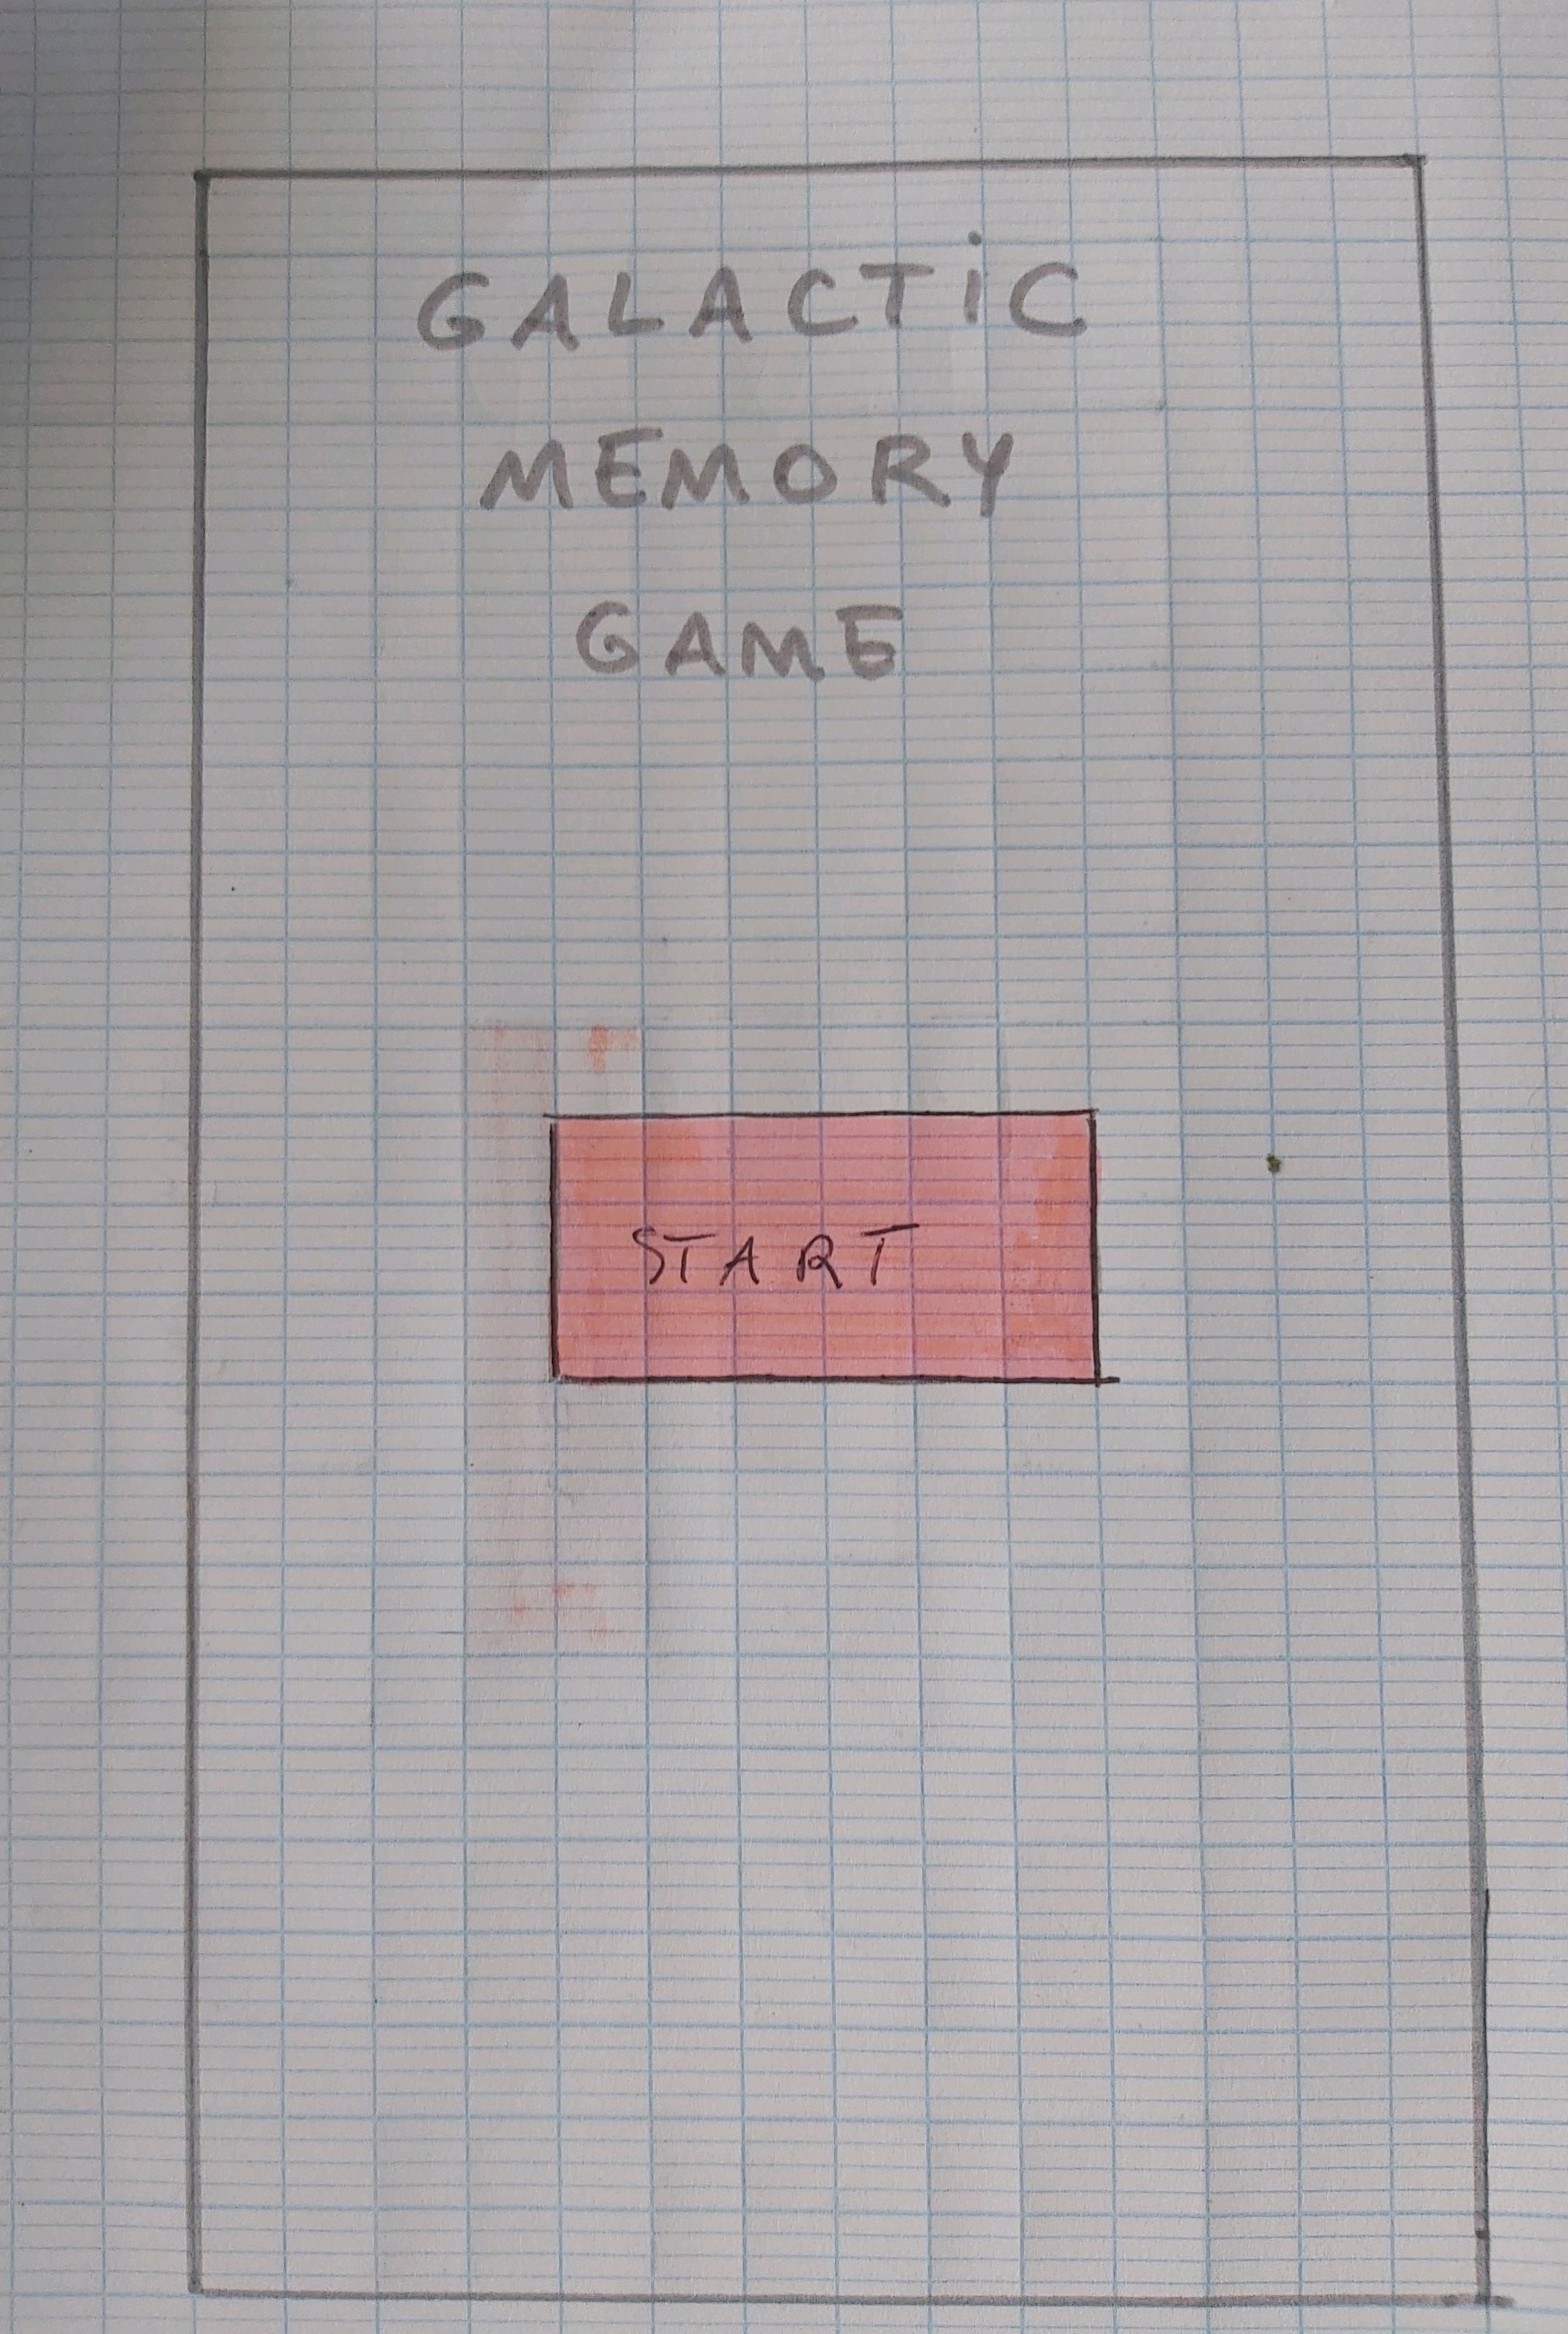 GALACTiC
MEMORY
GAME
START